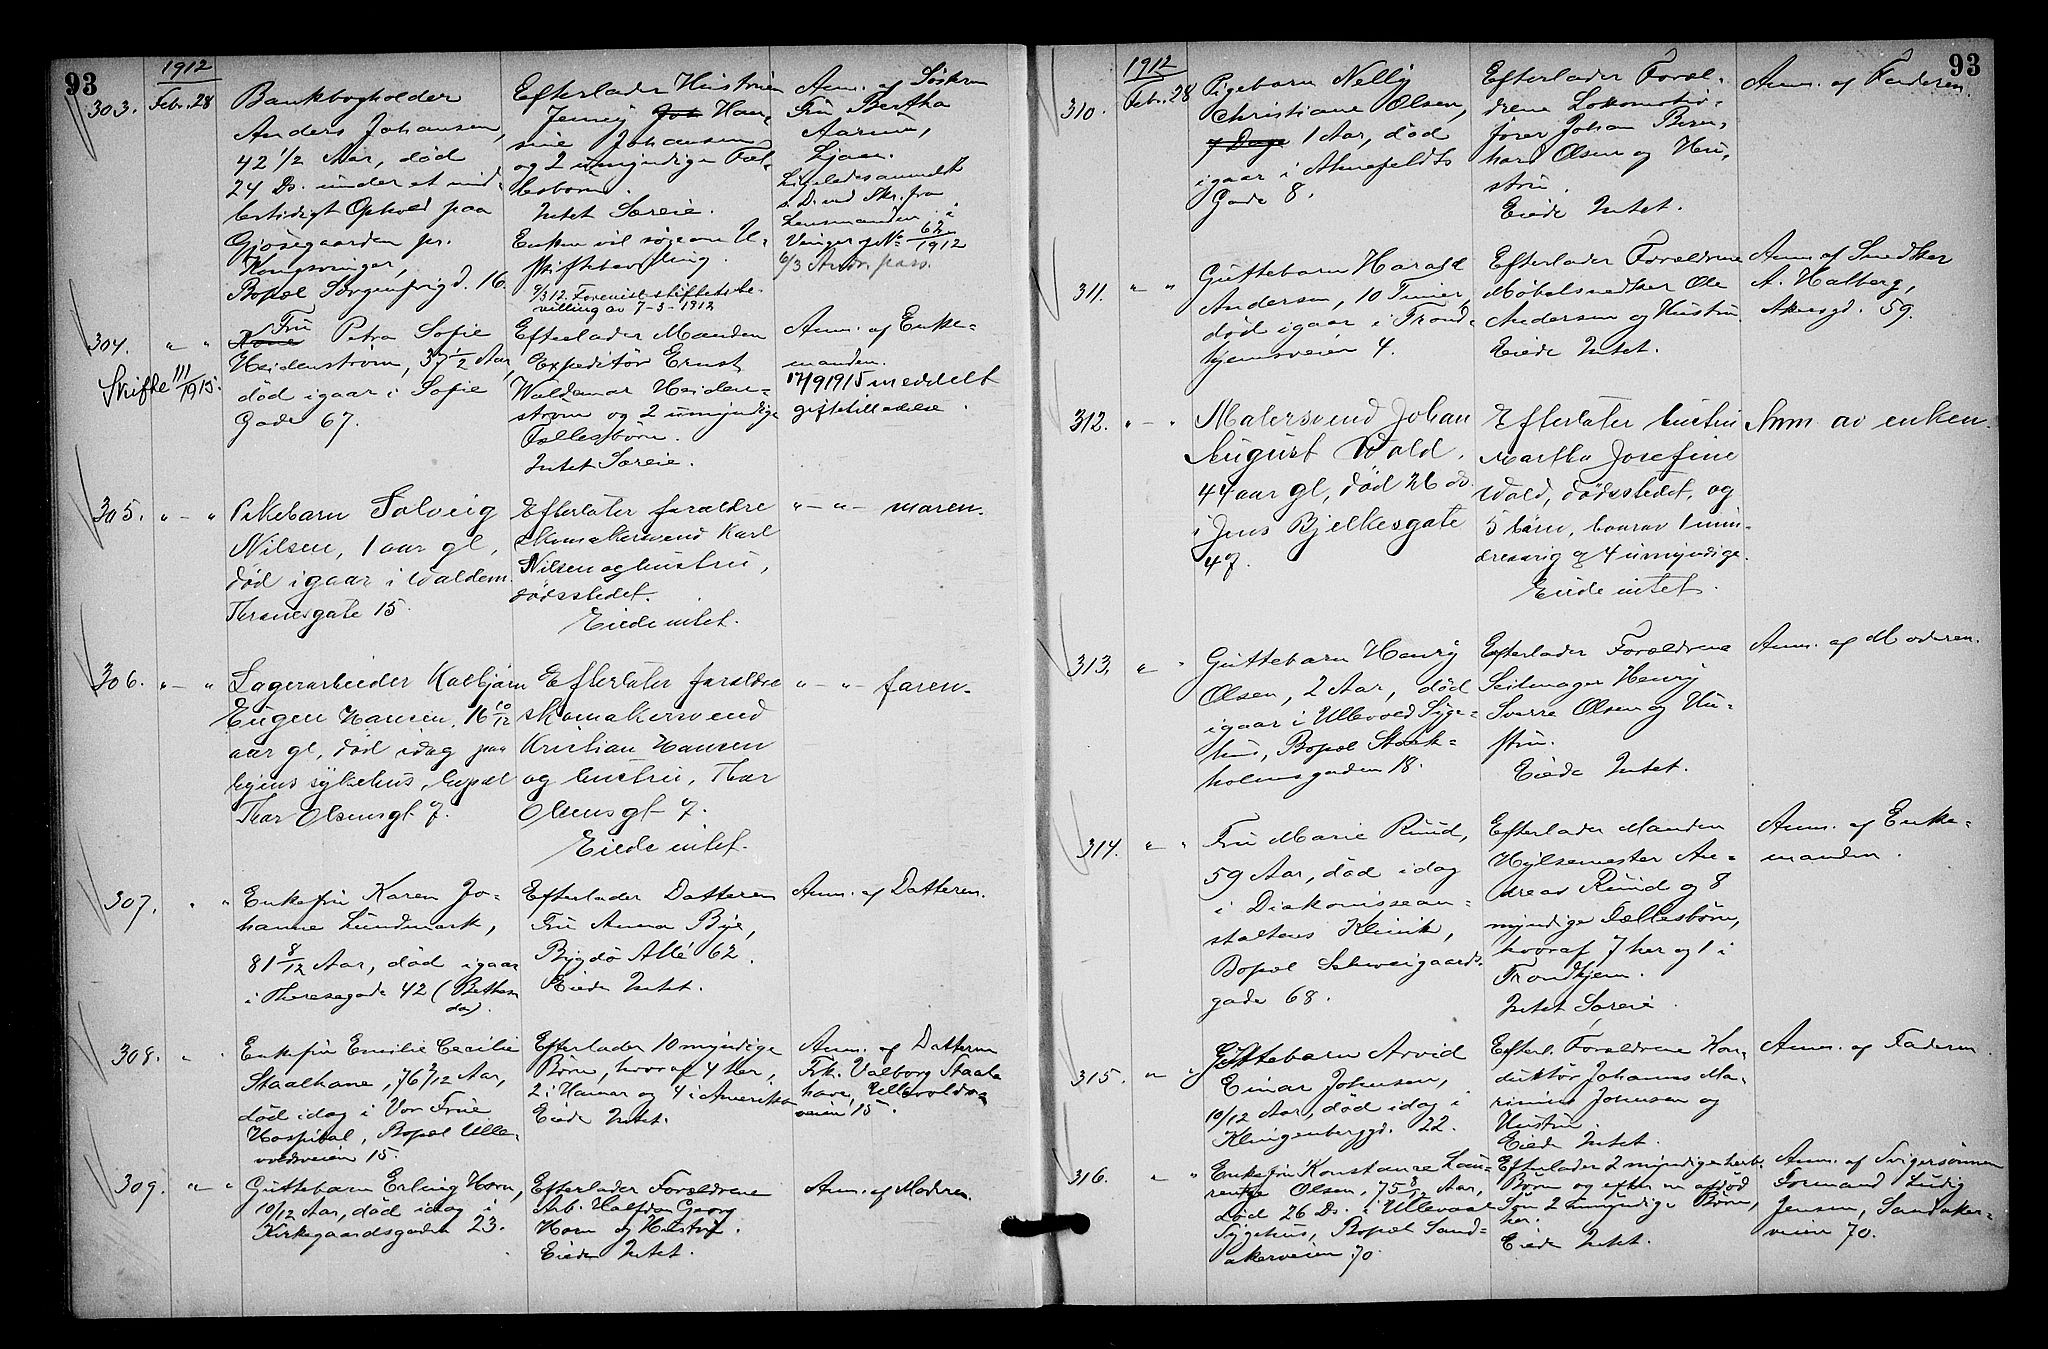 93
1912
303.
Febr. 28
Bankbogholder
Anders Johansen,
42 1/2 Aar, død
24 Ds. under et mid-
lertidigt Ophold paa
Gjøsegaarden pr.
Kongsvinger,
Bopæl Sorgenfrigd. 16.
Efterlader Hustruen
Jenny Joh Han-
sine Johansen
og 2 umyndige Fæl-
lesbørn.
Intet Særeie.
Enken vil søge om U-
skiftebevilling.
9/3 12. Forevist skiftebe-
villing av 7-3-1912
Anm. af Søsteren
Fru Bertha
Ljan.
Ligeledes anmeldt
v. Dend Skr. fra
Lensmanden i
Vinger
304.
" "
Skifte 111/1915.
Fru Petra Sofie
Heidenstrøm, 37 1/2 Aar,
død igaar i Sofie
Gade 67.
Efterlader Manden
Expeditør Ernst
Waldemar Heiden-
strøm og 2 umyndige
Fællesbørn.
Intet Særeie.
Anm. af Enke-
manden.
17/9 1915 meddelt
giftetilladelse.
305.
" — "
Pikebarn Solveig
Nilsen, 1 aar gl,
død igaar i Waldem.
Thranesgate 15.
Efterlater forældre
skomakersvend Karl
Nilsen og hustru,
dødsstedet.
Eiede intet.
" — " — moren.
306.
" — "
Lagerarbeider Kolbjørn
Eugen Hansen, 16 10/12
aar gl, død idag paa
byens sykehus, bopæl
Thor Olsensgt 7.
Efterlater forældre
skomakersvend
Kristian Hansen
og hustru, Thor
Olsensgt 7.
Eiede intet.
" — " — faren.
307.
" "
Enkefru Karen Jo-
hanne Lundmark,
81 8/12 Aar, død igaar
i Theresegade 42 (Bethes
da).
Efterlader Datteren
Fru Anna Bye,
Bygdø Allé 62.
Eiede Intet.
Anm. af Datteren.
308.
" "
Enkefru Emilie Cecilie
Staalhane, 76 2/12 Aar,
død idag i Vor Frue
Hospital, Bopæl Ulle-
voldsveien 15.
Efterlader 10 myndige
Børn, hvoraf 4 her,
2 i Hamar og 4 i Amerika
Eiede Intet.
Anm. af Datteren
Frk. Valborg Staal-
hane, Ullevolds-
veien 15.
309.
" — "
Guttebarn Erling Horn,
10/12 Aar, død idag i
Kirkegaardsgaden 23.
Efterlader Forældrene
Arb. Halfdan Georg
Horn og Hustru.
Eiede Intet.
Anm. af Moderen.
93
1912
310.
Febr. 28
Pigebarn Nelly
Christiane Olsen,
7 Dage 1 Aar, død
igaar i Ahnefeldts
Gade 8.
Efterlader Foræl-
drene Lokomotiv-
fører Johan Bern-
hard Olsen og Hu-
stru.
Eiede Intet.
Anm. af Faderen.
311.
" "
Guttebarn Harald
Andersen, 10 Timer,
død igaar i Trond-
hjemsveien 4.
Efterlader Forældrene
Møbelsnedker Ole
Andersen og Hustru.
Eiede Intet.
Anm. af Snedker
A. Halberg,
Akersgd. 59.
312.
" — "
Malersvend Johan
August Wold,
44 aar gl, død 26 ds.
i Jens Bjelkesgate
47.
Efterlater hustru
Martha Josefine
Wold, dødsstedet, og
5 børn, hvorav 1 min-
dreaarig og 4 umyndige.
Eiede intet.
Anm av enken.
313.
" "
Guttebarn Henry
Olsen, 2 Aar, død
igaar i Ullevold Syge-
hus, Bopæl Stock-
holmsgaden 18.
Efterlader Forældrene
Seilmager Henry
Sverre Olsen og Hu-
stru.
Eiede Intet.
Anm. af Moderen.
314.
" "
Fru Marie Ruud,
59 Aar, død idag
i Diakonissean-
staltens Klinik,
Bopæl Schweigaards-
gade 68.
Efterlader Manden
Hylsemester An-
dreas Ruud og 8
myndige Fællesbørn,
hvoraf 7 her og 1 i
Trondhjem.
Intet Særeie.
Anm. af Enke-
manden.
315.
" "
Guttebarn Arvid
Einar Johnsen,
10/12 Aar, død idag i
Klingenberggd. 22.
Efterl. Forældrene Kon-
duktør Johannes Ma-
rinius Johnsen og
Hustru.
Eiede Intet.
Anm. af Faderen.
316.
" "
Enkefru Konstance Lau-
rentze Olsen, 75 8/12 Aar,
død 26 Ds. i Ullevaal
Sygehus, Bopæl Sand-
akerveien 70.
Efterlader 2 myndige herb.
Børn og efter en afdød
Søn 2 umyndige Børn,
her.
Eiede Intet.
Anm. af Svigersønnen
Formand Ludv.
Jensen, Sandaker-
veien 70.